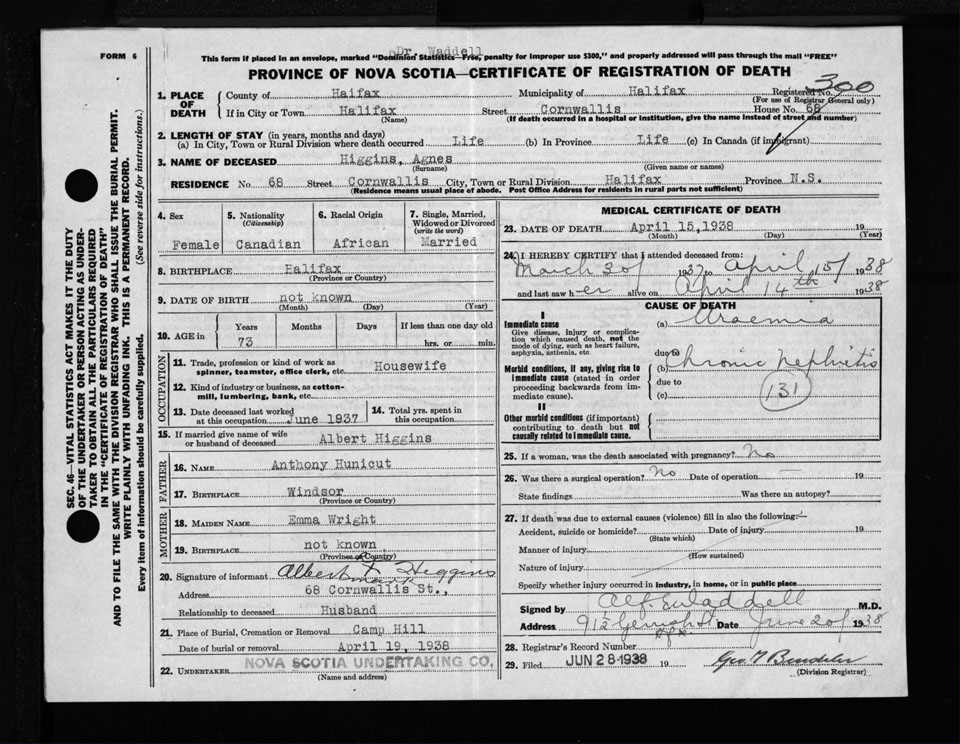 Dr. Waddell
FORM 6
This form if placed in an envelope, marked "Dominion Statistics—Free, penalty for improper use $300," and properly addressed will pass through the mail "FREE"
PROVINCE OF NOVA SCOTIA—CERTIFICATE OF REGISTRATION OF DEATH
SEC. 46—VITAL STATISTICS ACT MAKES IT THE DUTY
OF THE UNDERTAKER OR PERSON ACTING AS UNDER-
TAKER TO OBTAIN ALL THE PARTICULARS REQUIRED
IN THE "CERTIFICATE OF REGISTRATION OF DEATH"
AND TO FILE THE SAME WITH THE DIVISION REGISTRAR WHO SHALL ISSUE THE BURIAL PERMIT.
WRITE PLAINLY WITH UNFADING INK. THIS IS A PERMANENT RECORD.
Every item of information should be carefully supplied. (See reverse side for instructions.)
1. PLACE OF DEATH
County of Haifax Municipality of Halifax Registered No. 300
(For use of Registrar General only)
If in City or Town Halifax Street Cornwallis House No. 68
(Name) (If death occurred in a hospital or institution, give the name instead of street and number)
2. LENGTH OF STAY (in years, months and days)
(a) In City, Town or Rural Division where death occurred Life (b) In Province Life (c) In Canada (if immigrant)
3. NAME OF DECEASED Higgins, Agnes
(Surname) (Given name or names)
RESIDENCE No. 68 Street Cornwallis City, Town or Rural Division Halifax Province N.S.
(Residence means usual place of abode. Post Office Address for residents in rural parts not sufficient)
4. Sex Female
5. Nationality (Citizenship) Canadian
6. Racial Origin African
7. Single, Married, Widowed or Divorced (write the word) Married
8. BIRTHPLACE Halifax
(Province or Country)
9. DATE OF BIRTH not known
(Month) (Day) (Year)
10. AGE in Years Months Days If less than one day old
73 hrs. or min.
OCCUPATION
11. Trade, profession or kind of work as spinner, teamster, office clerk, etc. Housewife
12. Kind of industry or business, as cotton-mill, lumbering, bank, etc.
13. Date deceased last worked at this occupation June 1937
14. Total yrs. spent in this occupation
15. If married give name of wife or husband of deceased Albert Higgins
FATHER
16. NAME Anthony Hunicut
17. BIRTHPLACE Windsor
(Province or Country)
MOTHER
18. MAIDEN NAME Emma Wright
19. BIRTHPLACE not known
(Province or Country)
20. Signature of informant Albert X Higgins
mark
Address 68 Cornwallis St.,
Relationship to deceased Husband
21. Place of Burial, Cremation or Removal Camp Hill
Date of burial or removal April 19, 1938
22. UNDERTAKER NOVA SCOTIA UNDERTAKING CO.
(Name and address)
MEDICAL CERTIFICATE OF DEATH
23. DATE OF DEATH April 15,1938 19
(Month) (Day) (Year)
24. I HEREBY CERTIFY that I attended deceased from:
March 30/ 1937 to April 15/ 1938
and last saw her alive on April 14th 1938
CAUSE OF DEATH
I
Immediate cause
Give disease, injury or complication which caused death, not the mode of dying, such as heart failure, asphyxia, asthenia, etc
(a) Uraemia
due to
Morbid conditions, if any, giving rise to immediate cause (stated in order proceeding backwards from immediate cause).
(b) Chronic nephritis
due to
(c)
131
II
Other morbid conditions (if important) contributing to death but not causally related to immediate cause.
25. If a woman, was the death associated with pregnancy? No
26. Was there a surgical operation? No Date of operation 19
State findings Was there an autopsy?
27. If death was due to external causes (violence) fill in also the following:—
Accident, suicide or homicide? Date of injury 19
(State which)
Manner of injury
(How sustained)
Nature of injury
Specify whether injury occurred in industry, in home, or in public place
Signed by Alf. E. Waddell M.D.
Address 91½ Date June 20/ 1938
28. Registrar's Record Number
29. Filed JUN 28 1938 19
(Division Registrar)